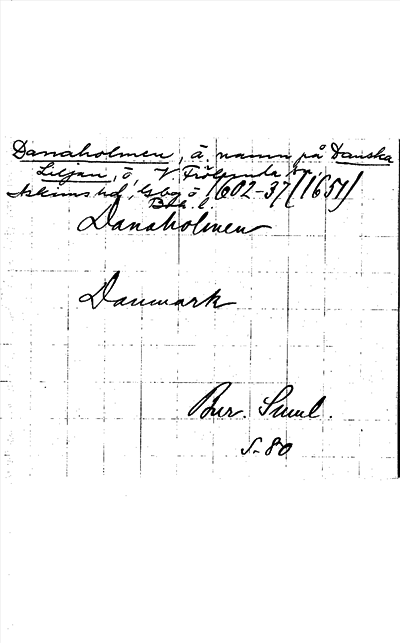 Danaholmen, ä. namn på Danska
Liljan, ö, V Frölunda sn,
Askims hd, Gbgs o
Boh. l. 1602-37 (1651)
Danaholmen
Danmark
Bur. Suml.
S. 80